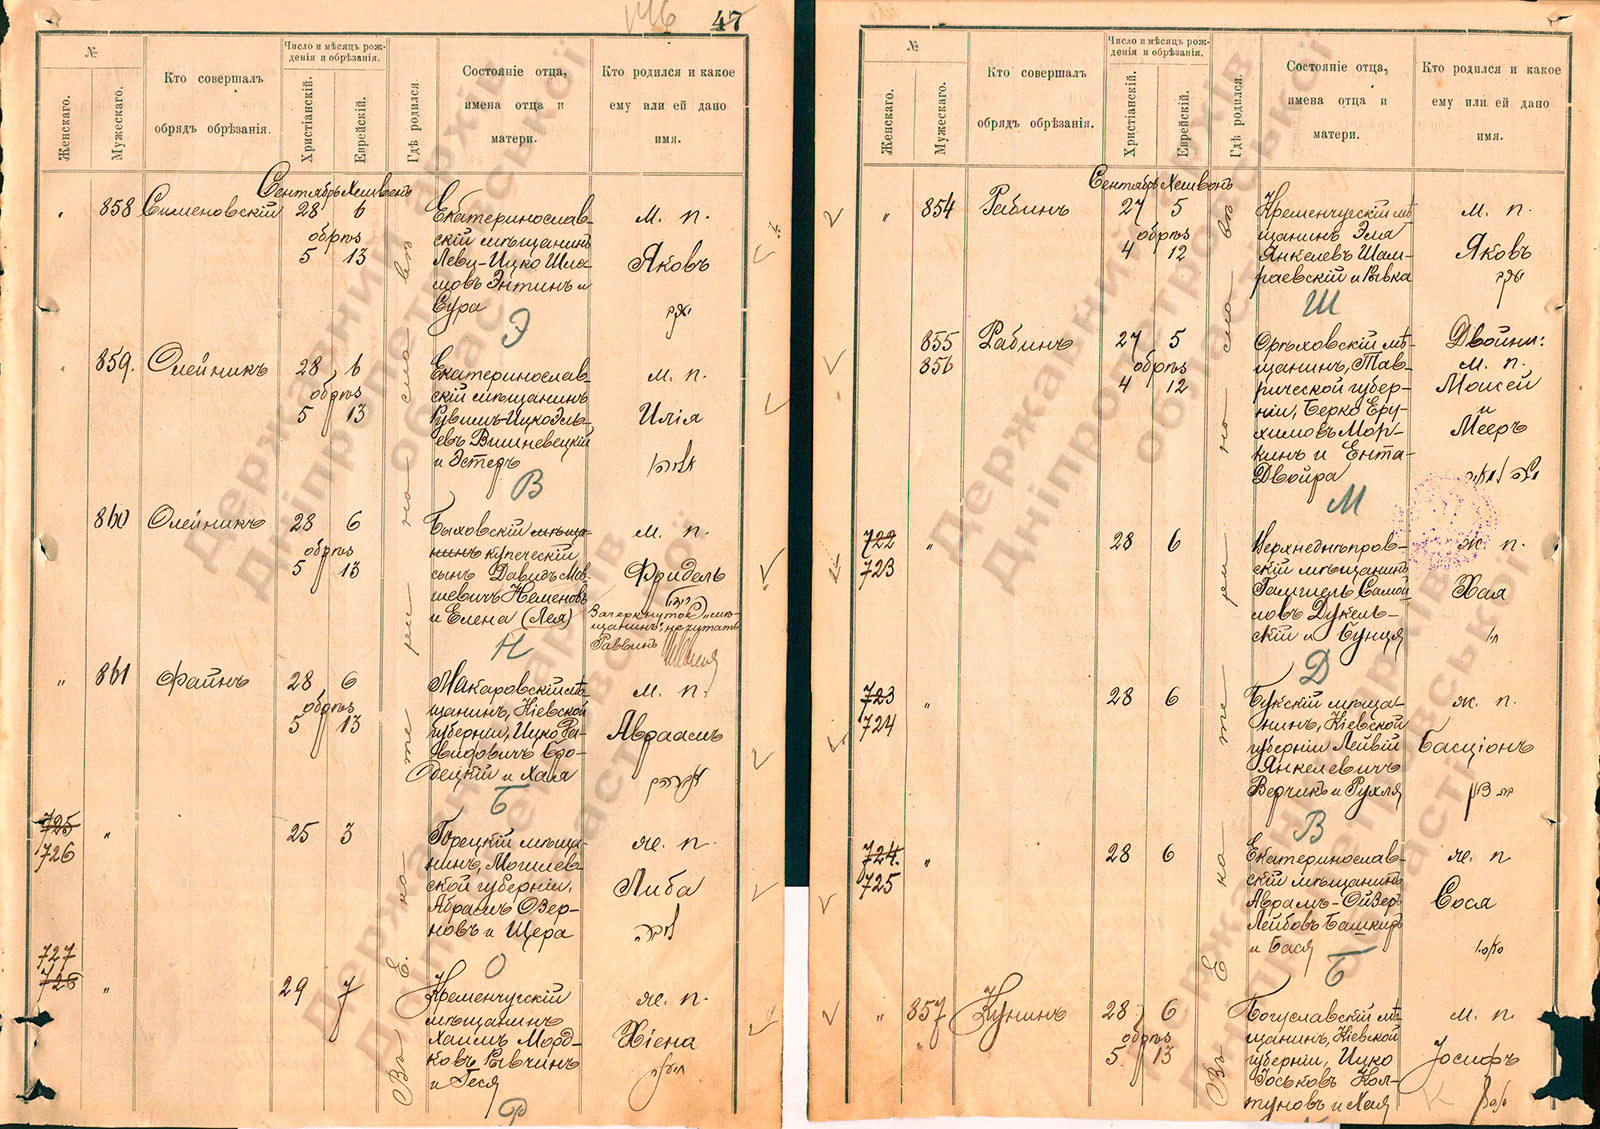 47
№
Женскаго.
Мужескаго.
Кто совершалъ
обрядъ обрѣзанія.
Число и мѣсяцъ рож-
денія и обрѣзанія.
Христіанскій.
Еврейскій.
Гдѣ родился.
Состояніе отца,
имена отца и
матери.
Кто родился и какое
ему или ей дано
имя.
Сентябрь Хешвонъ
858 Сименовскій 28 6
обрѣз
5 13
Екатеринослав-
скій мѣщанинъ
Левц-Ицко Шлё-
мовъ Энтинъ и
Сура
Э
м. п.
Яковъ
יעקב
859. Олейникъ 28 6
обрѣз
5 13
Екатеринослав-
скій мѣщанинъ
Рувимъ-Ицко Эль-
евъ Вишневецкій
и Эстеръ
В
м. п.
Илія
860 Олейникъ 28 6
обрѣз
5 13
Быховскій мѣща-
нинъ купеческій
сынъ Давидъ Мов-
шевичъ Неменовъ
и Елена (Лея)
Н
м. п.
Фридель
Зачеркнутое „мѣ-
щанинъ" не читать
Раввинъ
„ 861 Файнъ 28 6
обрѣз
5 13
Макаровскій мѣ-
щанинъ, Кіевской
губерніи, Ицко Да-
видовичъ Бро-
децкій и Хая
Б
м. п.
Авраамъ
725
726 „ 25 3
Горецкій мѣща-
нинъ, Могилев-
ской губерніи,
Абрамъ Озер-
новъ и Щера
О
же. п.
Либа
727
726 „ 29 7
Кременчугскій
мѣщанинъ
Хаимъ Морд-
ковъ Рывчинъ
и Геся
Р
же. п.
Хіена
Въ Е ка те ри но сла вѣ
№
Женскаго.
Мужескаго.
Кто совершалъ
обрядъ обрѣзанія.
Число и мѣсяцъ рож-
денія и обрѣзанія.
Христіанскій.
Еврейскій.
Гдѣ родился.
Состояніе отца,
имена отца и
матери.
Кто родился и какое
ему или ей дано
имя.
Сентябрь Хешвонъ
„ 854 Рабинъ 27 5
обрѣз
4 12
Кременчугскій мѣ-
щанинъ Эма
Янкелевъ Шам-
раевскій и Рывка
Ш
м. п.
Яковъ
יעקב
855 Рабинъ 27 5
856 обрѣз
4 12
Орѣховскій мѣ-
щанинъ, Тав-
рической губер-
ніи, Берко Еру-
химовъ Мор-
кинъ и Ента-
Двойра
М
Двойни:
м. п.
Моисей
и
Мееръ
722
723 „ 28 6
Верхнеднѣпров-
скій мѣщанинъ
Гамшель Самой-
ловъ Дукель-
скій и Бунця
Д
ж. п.
Хая
723
724 „ 28 6
Букскій мѣща-
нинъ, Кіевской
губерніи Лейвій
Янкелевичъ
Верчикъ и Рухля
В
ж. п.
Басціонъ
בת ציון
724.
725 „ 28 6
Екатеринослав-
скій мѣщанинъ
Аврамъ-Ойзеръ
Лейбовъ Башкиръ
и Бася
Б
же. п
Сося
„ 857 Кунинъ 28 6
обрѣз
5 13
Богуславскій мѣ-
щанинъ, Кіевской
губерніи, Ицко
Іоськовъ Кол-
туновъ и Хая
м. п.
Іосифъ
Въ Е ка те ри но сла вѣ
Державний архів
Дніпропетровської
області